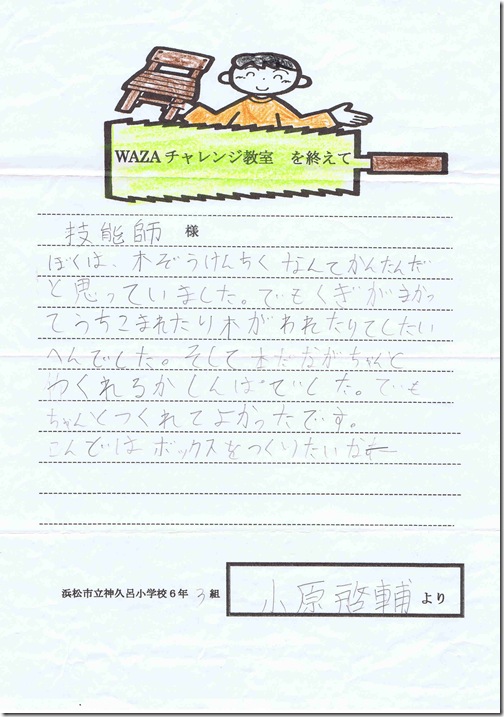 WAZAチャレンジ教室　を終えて
技能師　様
ぼくは、木ぞうけんちくなんてかんたんだ
と思っていました。でもくぎがまがっ
てうちこまれたり木がわれたりてしたい
へんでした。そして本だながちゃんと
つくれるかしんぱいでした。でも
ちゃんとつくれてよかったです。
こんどはボックスをつくりたい
浜松市立神久呂小学校６年　3　組　小原啓輔　より